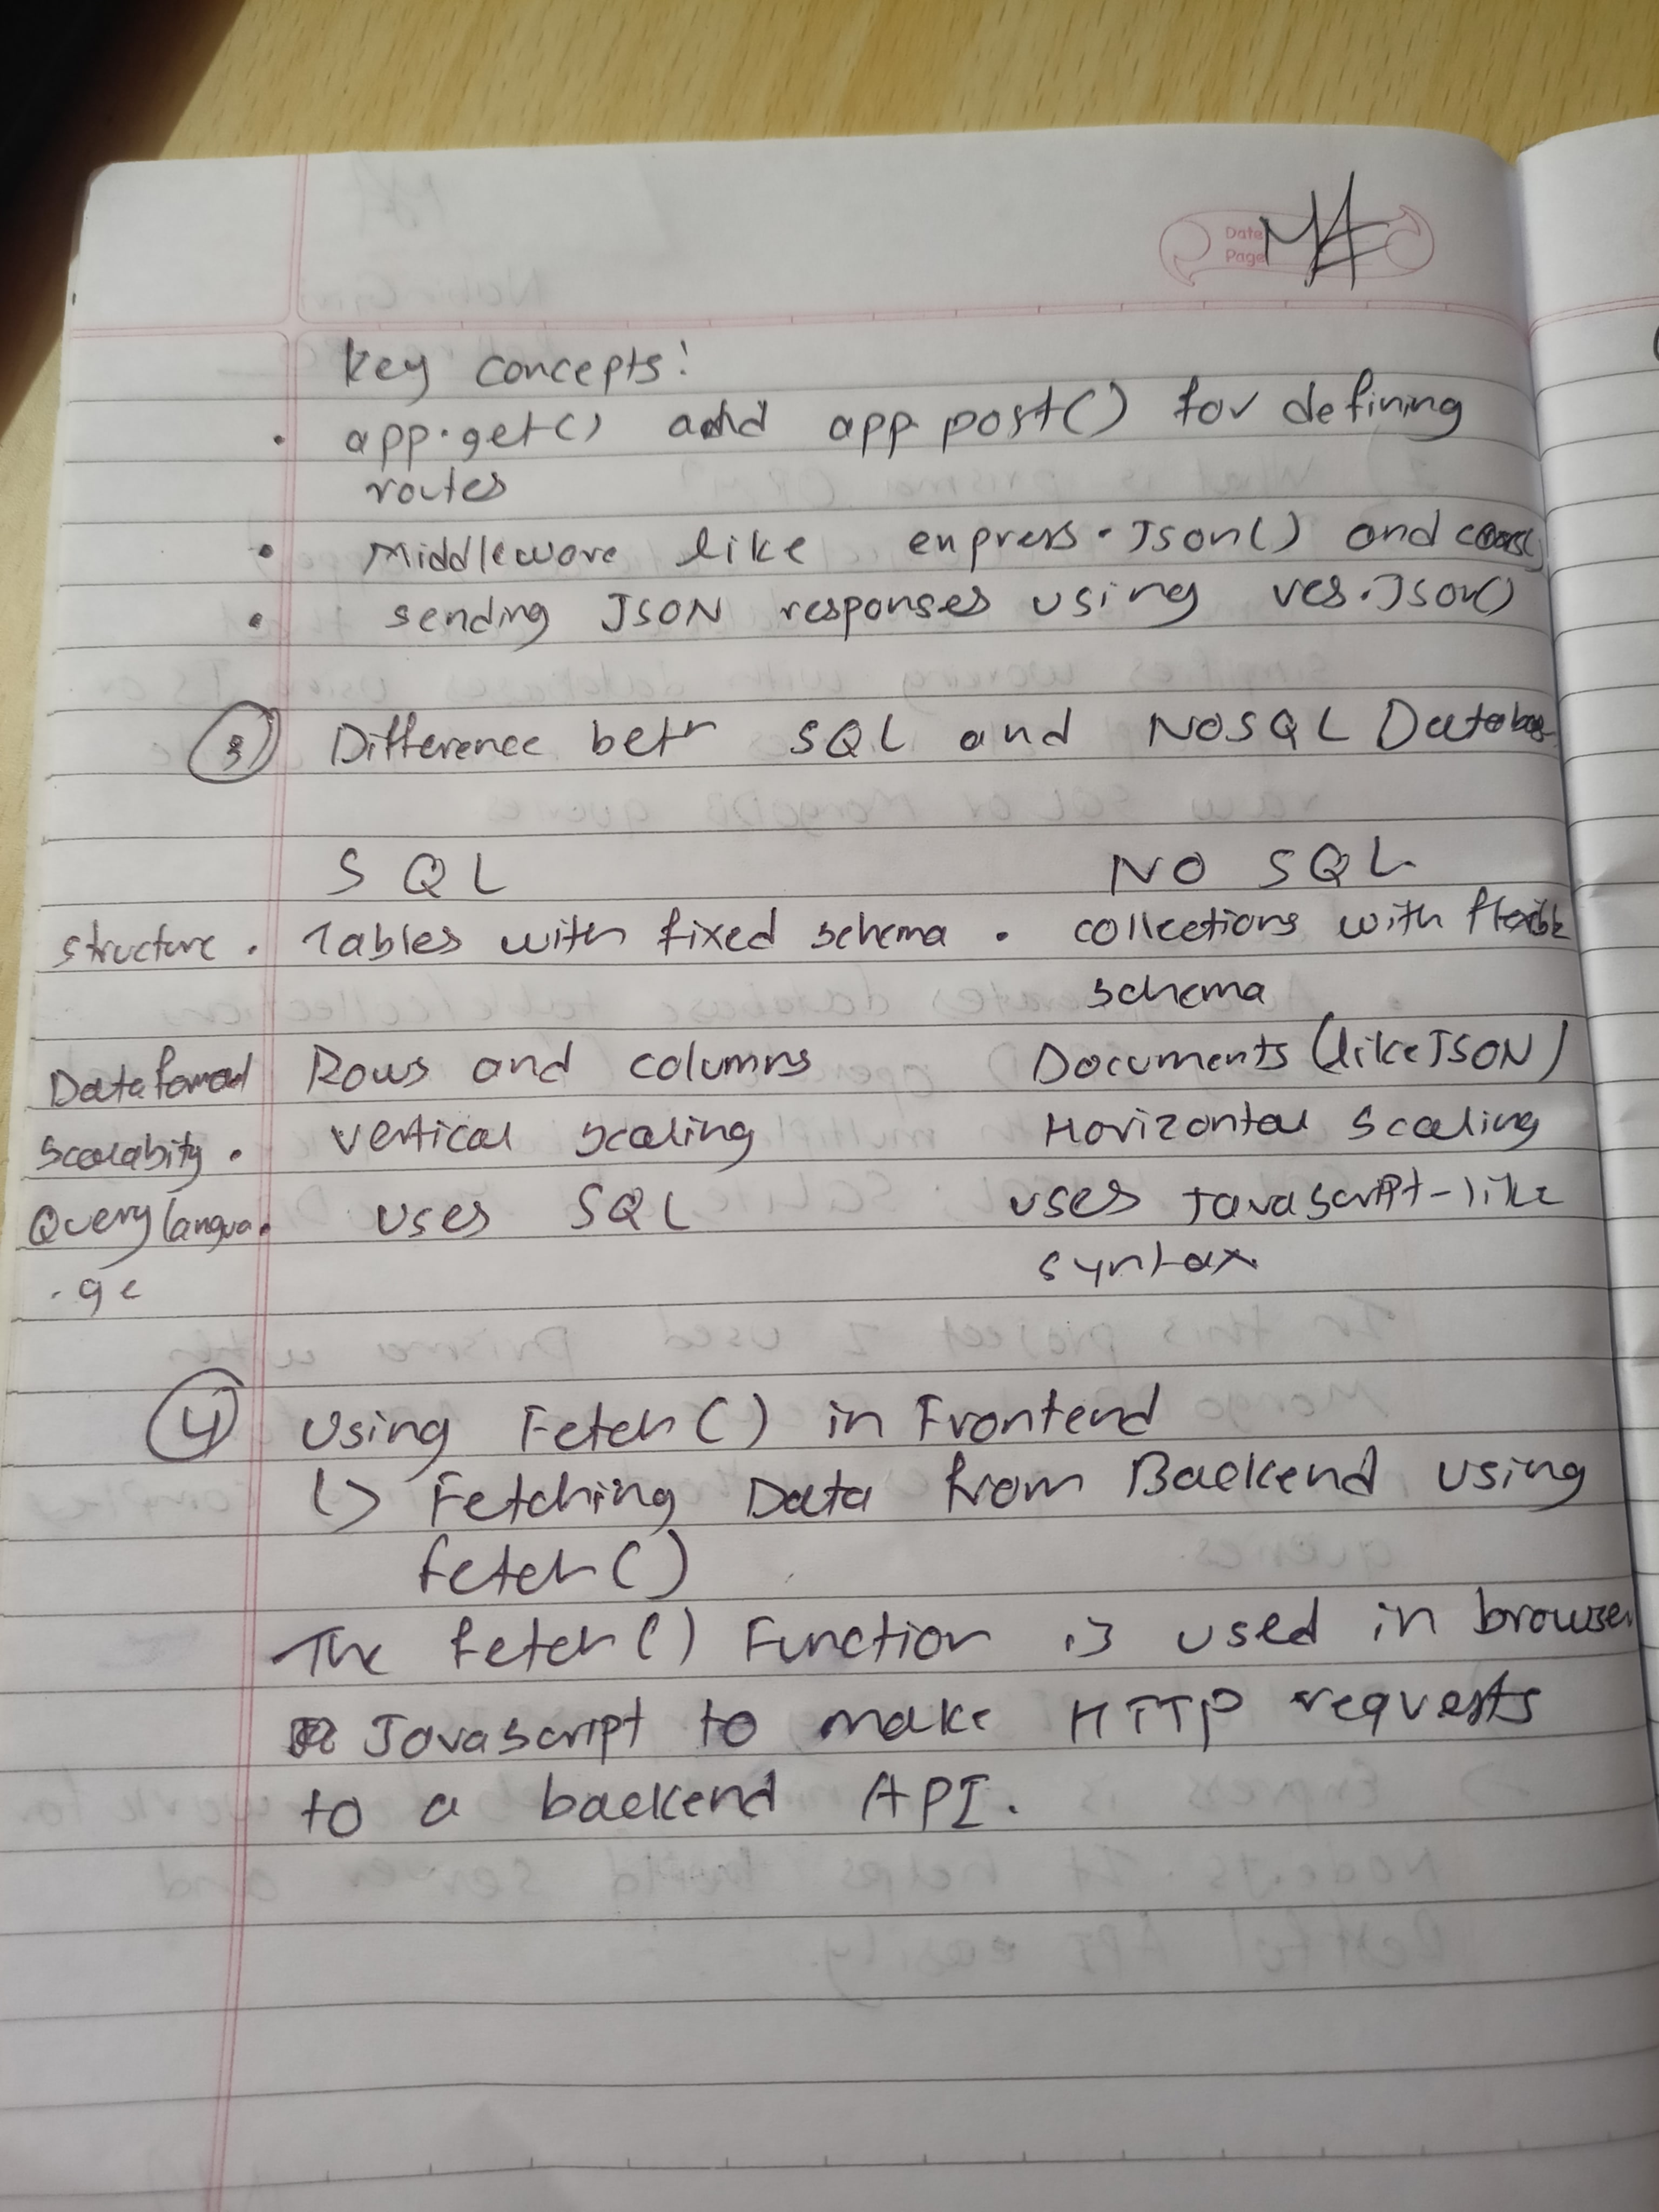 Date
Page
Key concepts:
• app.get() and app.post() for defining
routes
• Middleware like express.Json() and cors()
• sending JSON responses using res.Json()
3 Difference betn SQL and NOSQL Databas
SQL NO SQL
structure . Tables with fixed schema . collections with flexible
schema
Data format Rows and columns Documents (like JSON)
Scalabity . vertical scaling Horizontal scaling
Query langua . uses SQL uses Javascript-like
. ge syntax
4 Using Fetch() in Frontend
↳ Fetching Data from Backend using
fetch()
The fetch() Function is used in browser
Javascript to make HTTP requests
to a backend API.